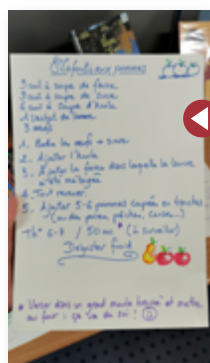 aux pommes
3 cuil à soupe de farine
3 cuil à soupe de sucre
6 cuil à soupe d'huile
1 sachet de levure
3 oeufs
1. Battre les oeufs + sucre
2. Ajouter l'huile
3. Ajouter la farine dans laquelle la levure
a été mélangée
4. Tout remuer.
5. Ajouter 5-6 pommes coupées en tranches
(ou des poires, pêches, cerises...)
Th° 6-7 / 50 mn * (à surveiller)
Déguster froid
* Verser dans un grand moule beurré et mettre
au four : ça va de soi !